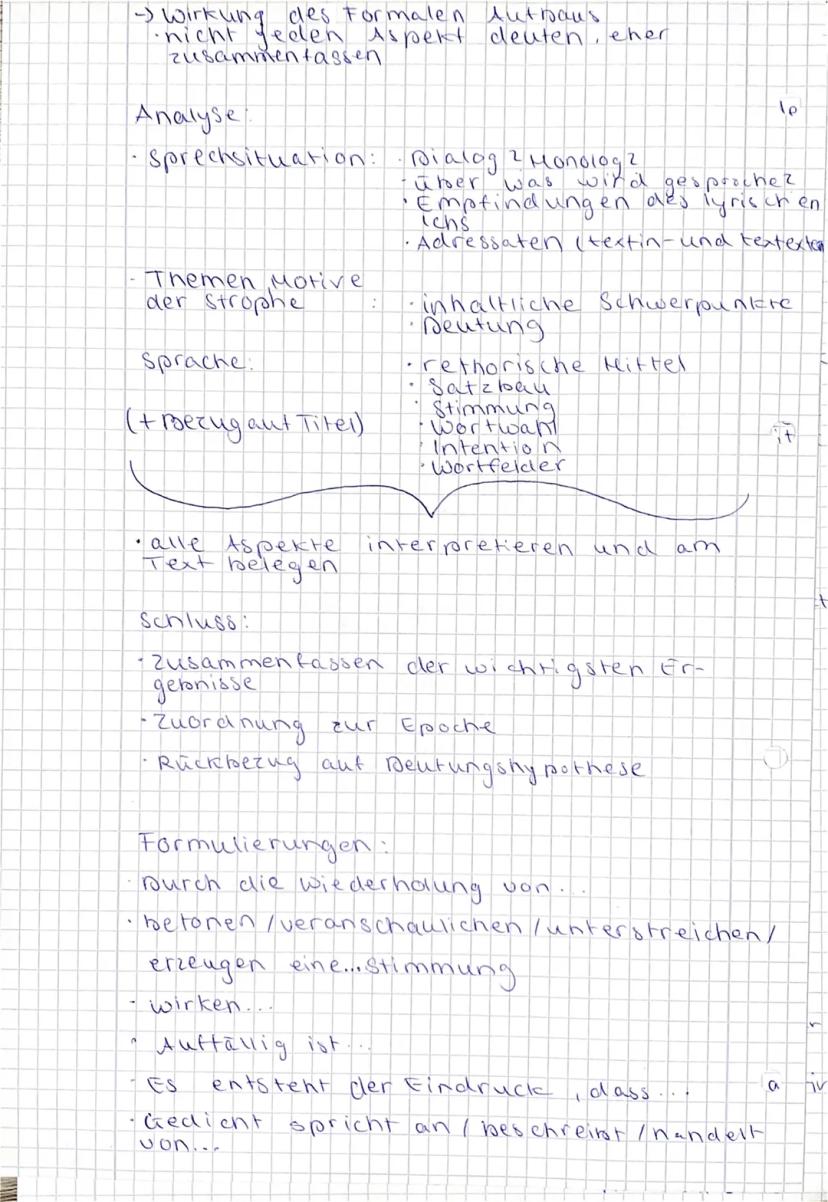 -> Wirkung des Formalen Aufbaus
· nicht jeden Aspekt deuten, eher
zusammenfassen
Analyse:
· Sprechsituation: · Dialog? Monolog?
- über was wird gesproche?
· Empfindungen des lyrischen
Ichs
· Adressaten (textin- und textextern
- Themen, Motive
der Strophe : · inhaltliche Schwerpunkte
· Deutung
Sprache: · rethorische Mittel
· Satzbau
· Stimmung
(+ Bezug auf Titel) · Wortwahl
· Intention
· Wortfelder
· alle Aspekte interpretieren und am
Text belegen
Schluss:
· Zusammenfassen der wichtigsten Er-
gebnisse
· Zuordnung zur Epoche
· Rückbezug auf Deutungshypothese
Formulierungen:
· Durch die Wiederholung von...
· betonen / veranschaulichen / unterstreichen /
erzeugen eine... Stimmung
· wirken...
· Auffällig ist...
· Es entsteht der Eindruck, dass...
· Gedicht spricht an / beschreibt / handelt
von...